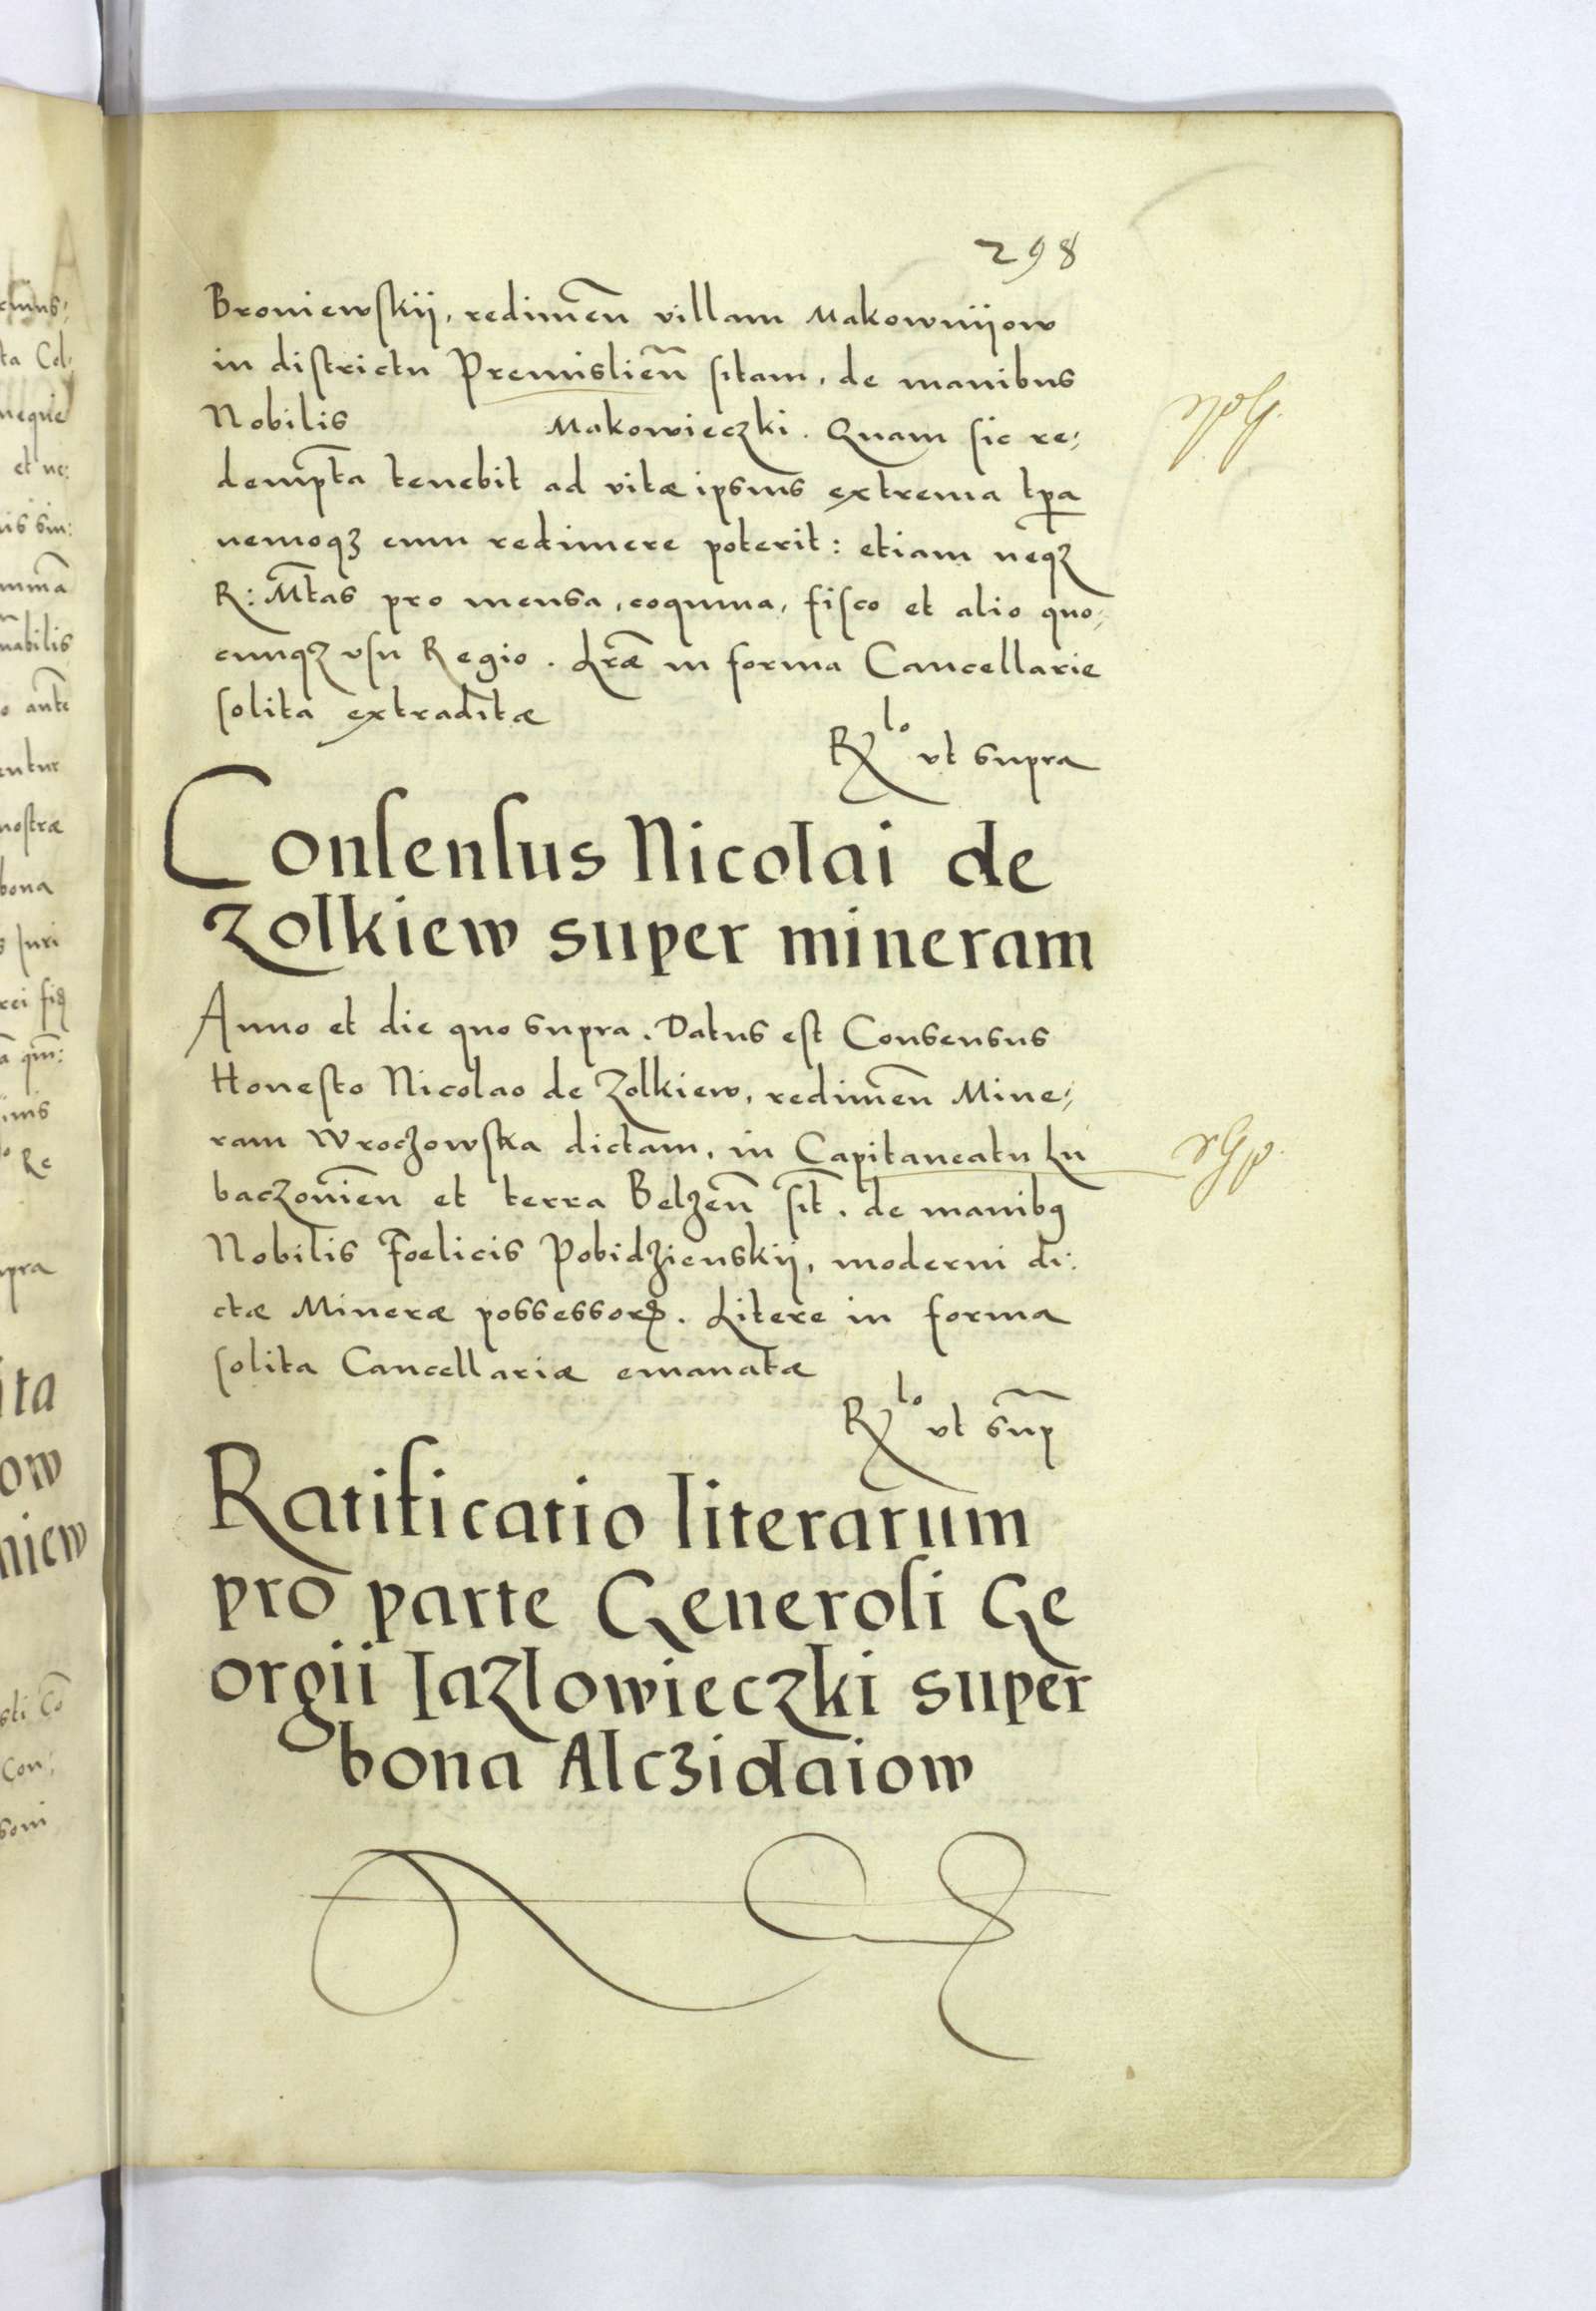 298
Broniewskij, redimēn villam Makownijow
in districtu Premislień sitam, de manibus
Nobilis Makowieczki. Quam sic re:
dempta tenebit ad vitæ ipsius extrema tpa
nemoqȝ eum redimere poterit: etiam neqȝ
R: Mtas pro mensa, coquina, fisco et alio quo:
cunqȝ usu Regio. Lræ in forma Cancellarie
solita extraditæ
Rlo ut supra
Consensus Nicolai de
Zolkiew super mineram
Anno et die quo supra. Datus est Consensus
Honesto Nicolao de Zolkiew, redimēn Mine:
ram Wroczowska dictam, in Capitaneatu Lu
baczonień et terra Belzeń sit. de manibꝰ
Nobilis Foelicis Pobidzienskij, moderni di:
ctæ Mineræ possessorꝭ. Litere in forma
solita Cancellariæ emanatæ
Rlo ut sup
Ratificatio literarum
pro parte Generosi Ge
orgii Jazlowieczki super
bona Alczidaiow